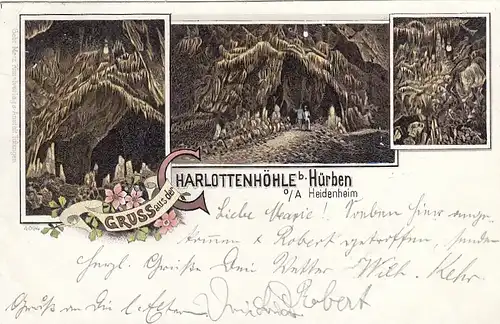 GRUSS aus der
CHARLOTTENHÖHLE b. Hürben
O/A Heidenheim
Liebe Marie! Soeben hier ange-
kommen & Robert getroffen, senden
herzl. Grüße Dein Vetter Wilh. Kehr
Gruß an die l. Eltern
Robert